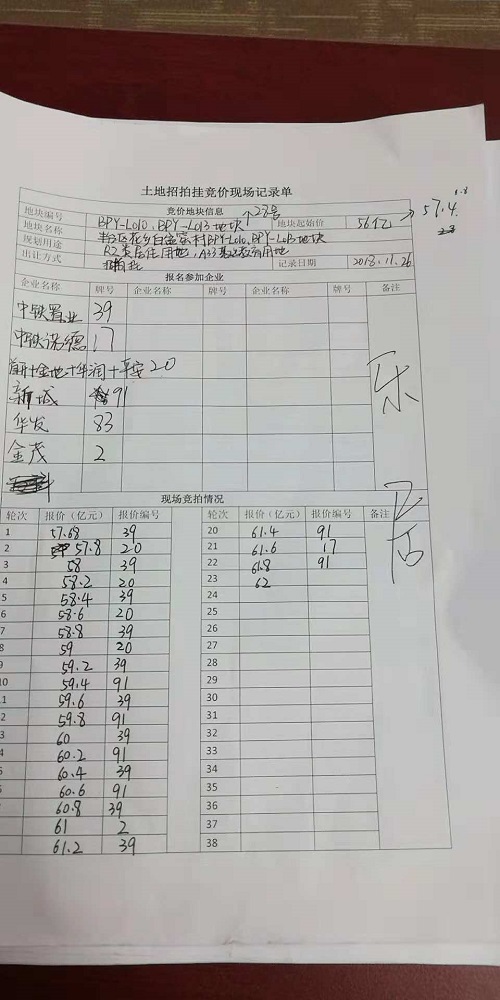 土地招拍挂竞价现场记录单
竞价地块信息
地块编号 28号
地块名称 BPY-L010、BPY-L013地块 地块起始价 56亿 → 57.4
规划用途 丰台区花乡白盆窑村BPY-L010、BPY-L013地块
R2类居住用地、A33基础教育用地
出让方式 记录日期 2018.11.26
报名参加企业
企业名称 牌号 企业名称 牌号 企业名称 牌号 备注
中铁置业 39
中铁诺德 17
首开+金地+华润+平安 20
新城 91
华发 83
金茂 2
现场竞拍情况
轮次 报价（亿元） 报价编号 轮次 报价（亿元） 报价编号 备注
1 57.68 39 20 61.4 91
2 57.8 20 21 61.6 17
3 58 39 22 61.8 91
4 58.2 20 23 62
5 58.4 39 24
6 58.6 20 25
7 58.8 39 26
8 59 20 27
9 59.2 39 28
10 59.4 91 29
1 59.6 39 30
2 59.8 91 31
3 60 39 32
4 60.2 91 33
60.4 39 34
60.6 91 35
60.8 39 36
61 2 37
61.2 39 38